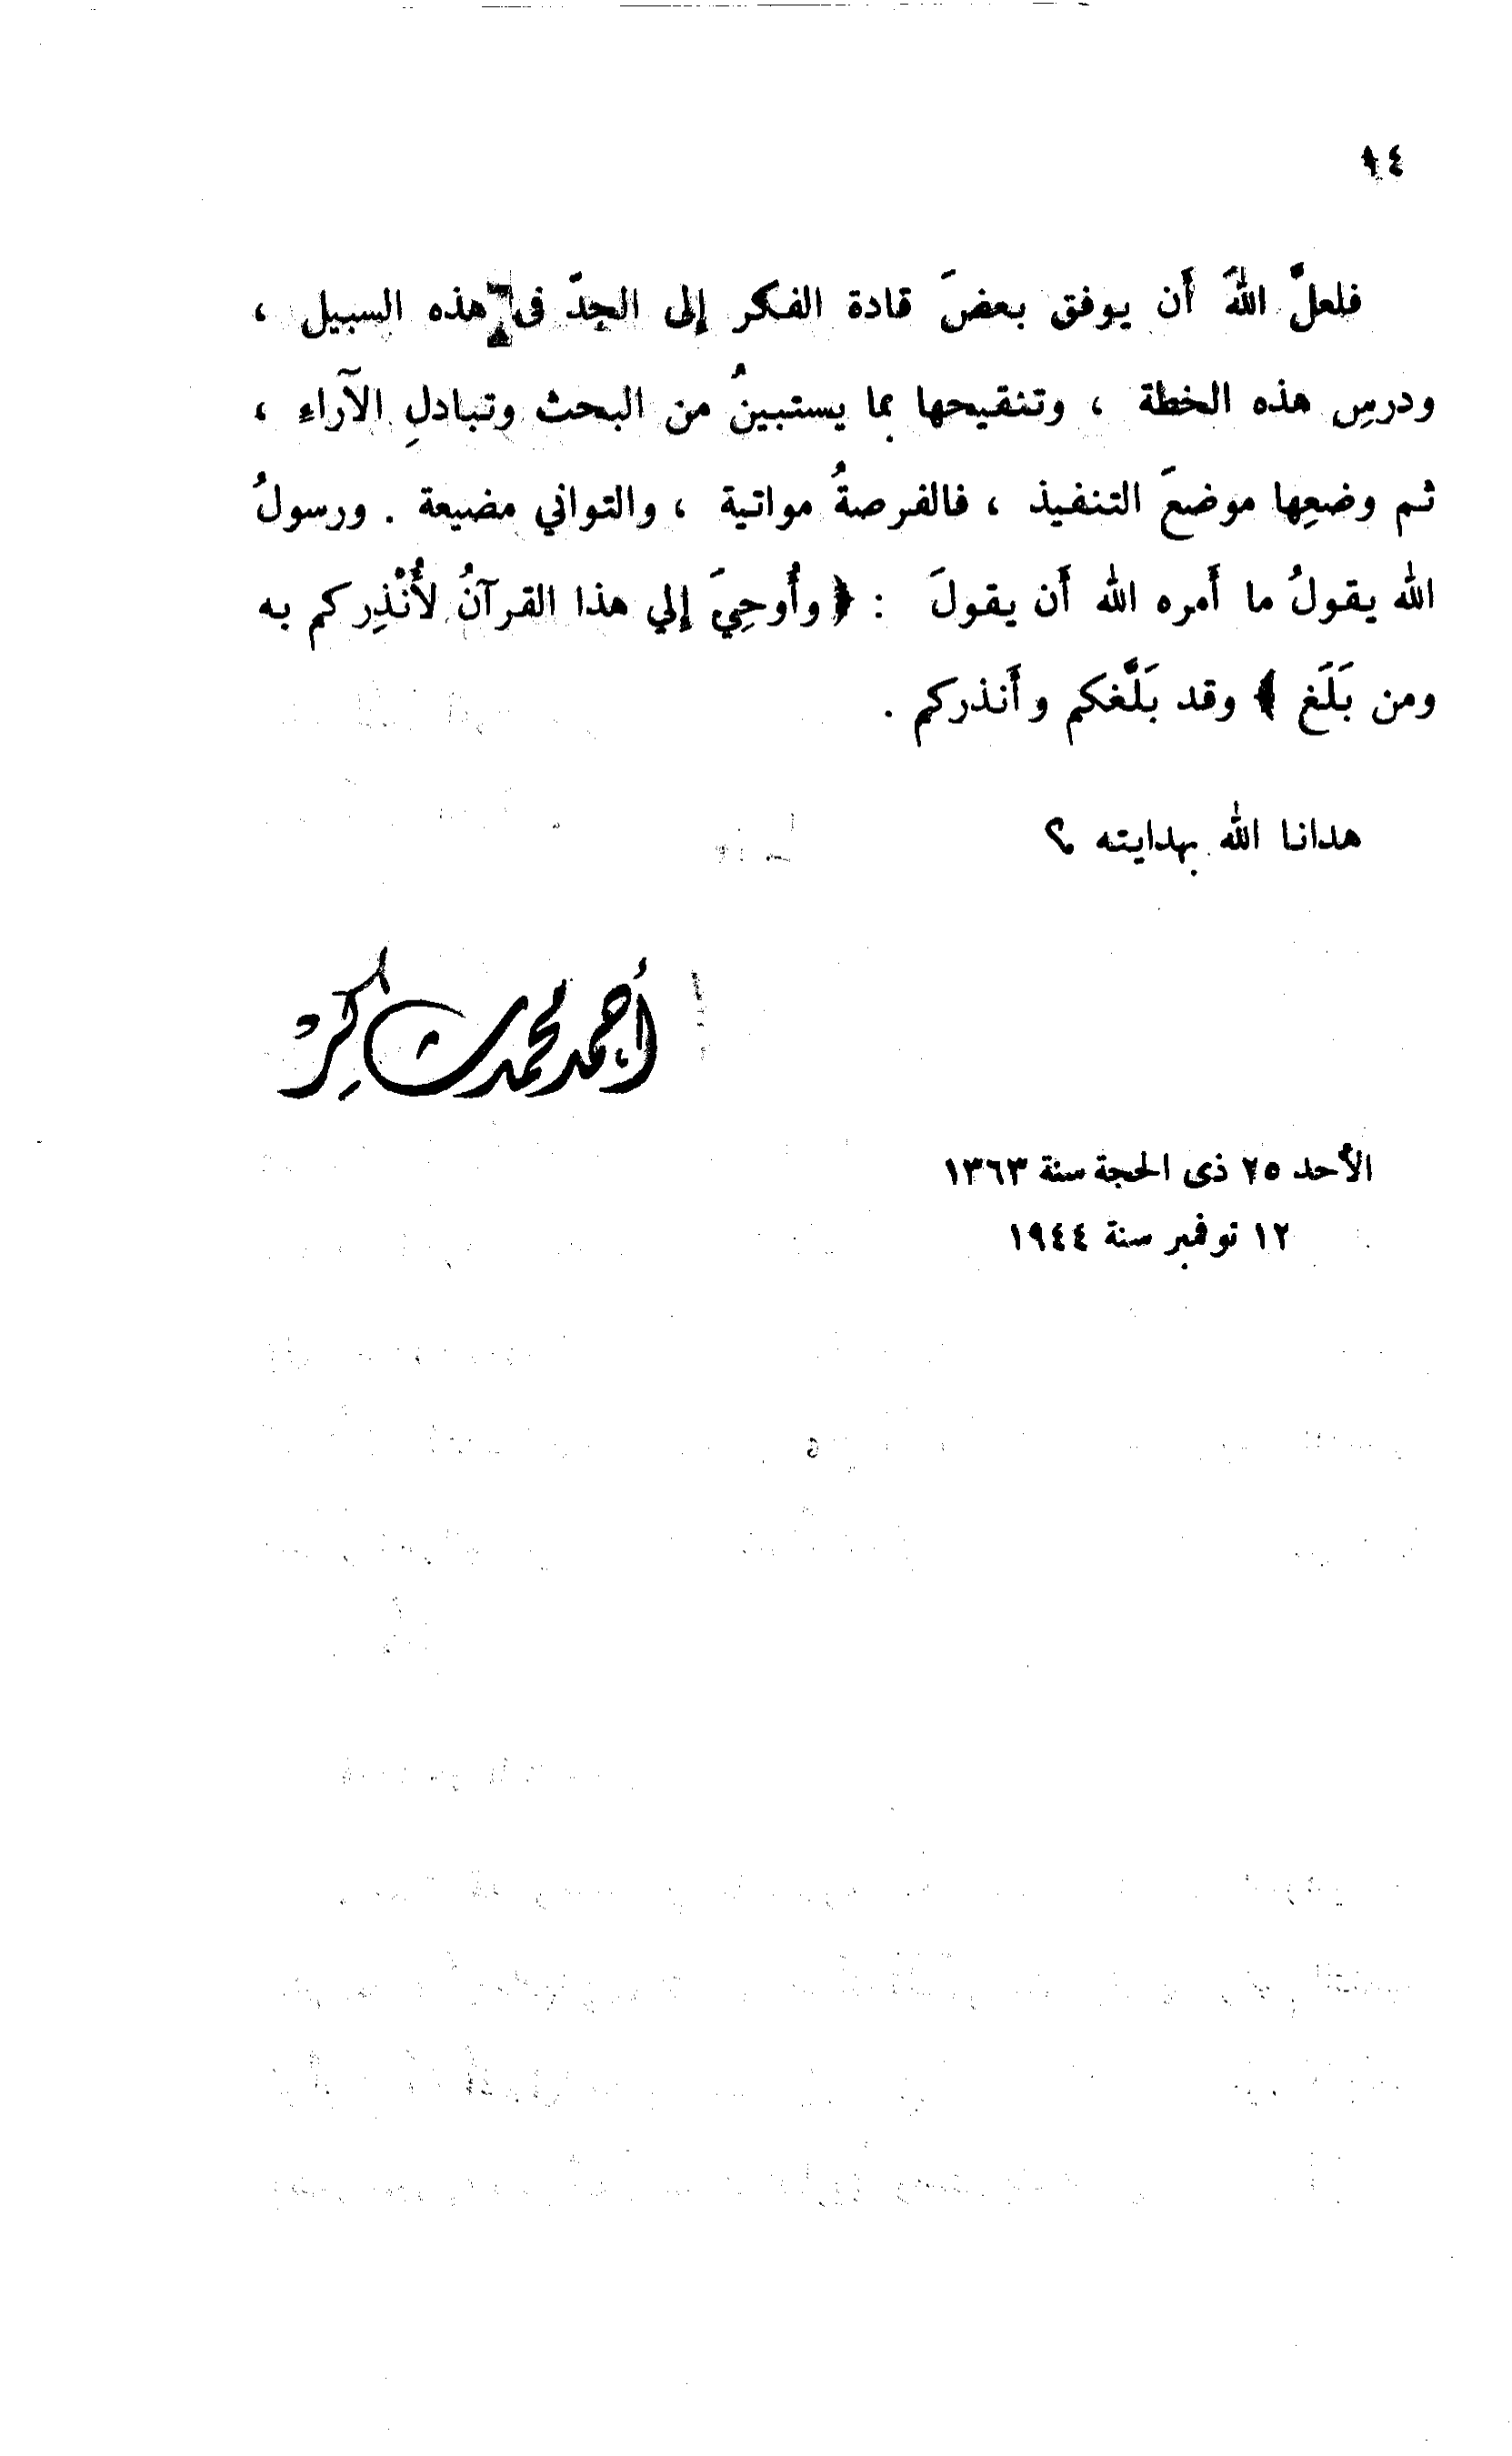 ١٤
فلعلَّ اللهَ أَن يوفق بعضَ قادة الفكر إلى الجدّ فى هذه السبيل ،
ودرسِ هذه الخطة ، وتنقيحها بما يستبينُ من البحث وتبادلِ الآراء ،
ثم وضعِها موضعَ التنفيذ ، فالفرصةُ مواتية ، والتواني مضيعة . ورسولُ
الله يقولُ ما أَمره الله أَن يقولَ : ﴿ وأُوحِيَ إلي هذا القرآنُ لأُنْذِركم به
ومن بَلَغ ﴾ وقد بَلَّغكم وأَنذركم .
هدانا الله بهدايته ؟
أحمد محمد شاكر
الأحد ٢٥ ذى الحجة سنة ١٣٦٣
١٢ نوفمبر سنة ١٩٤٤